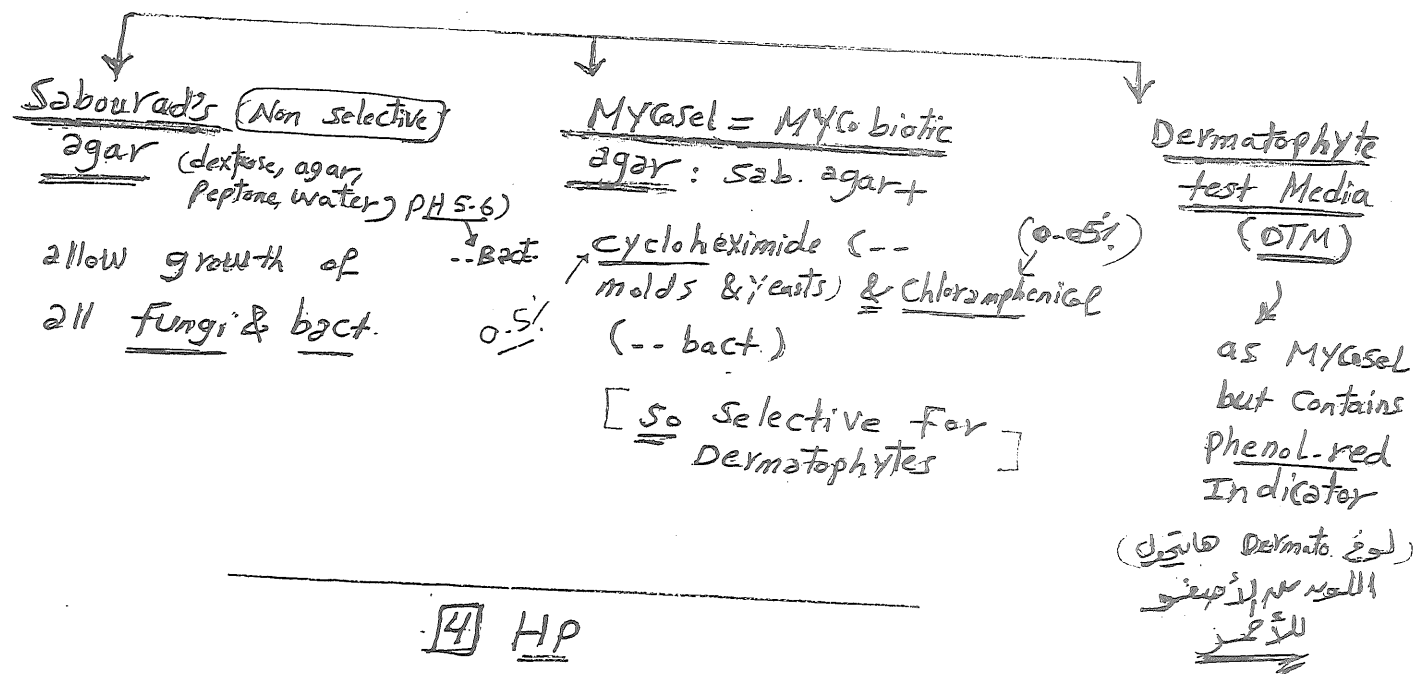 Sabourad's (Non selective)
agar (dextose, agar,
Peptone, water, PH 5.6)
--Bact.
allow growth of
all fungi & bact.
MYCosel = MYCobiotic
agar : Sab. agar +
cycloheximide (-- (0.05%)
molds & yeasts) & Chloramphenicol
0.5% (-- bact.)
[so selective For
Dermatophytes]
Dermatophyte
test Media
(DTM)
as MYCosel
but contains
phenol-red
Indicator
(لوفي Dermato. هايتحول
اللون من الأصفر
للأحمر
4 HP